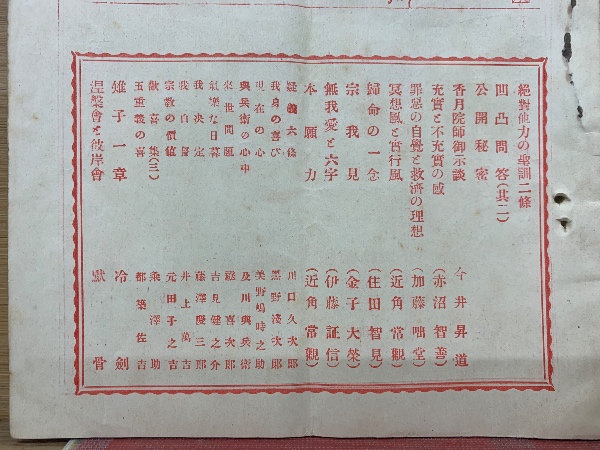 絶對他力の聖訓二條
凹凸問答(其二)
公開秘密
香月院師御示談 今井昇道
充實と不充實の感 (赤沼智善)
罪惡の自覺と救濟の理想 (加藤咄堂)
冥想風と實行風 (近角常觀)
歸命の一念 (住田智見)
宗我見 (金子大榮)
無我愛と六字 (伊藤証信)
本願力 (近角常觀)
疑義六條 川口久次郎
我身の喜び 黒野淺次郎
現在の心 美野嶋時之助
與兵衛の心中 及川與兵衛
來世問題 喜次郎
氣樂な日暮 吉見健之介
我決定 藤澤慶三郎
我自督 井上萬吉
宗敎の價値 元田子之吉
歡喜集(三) 乘澤助
五重義の喜 都築佐吉
雉子一章 冷劍
涅槃會と彼岸會 默骨